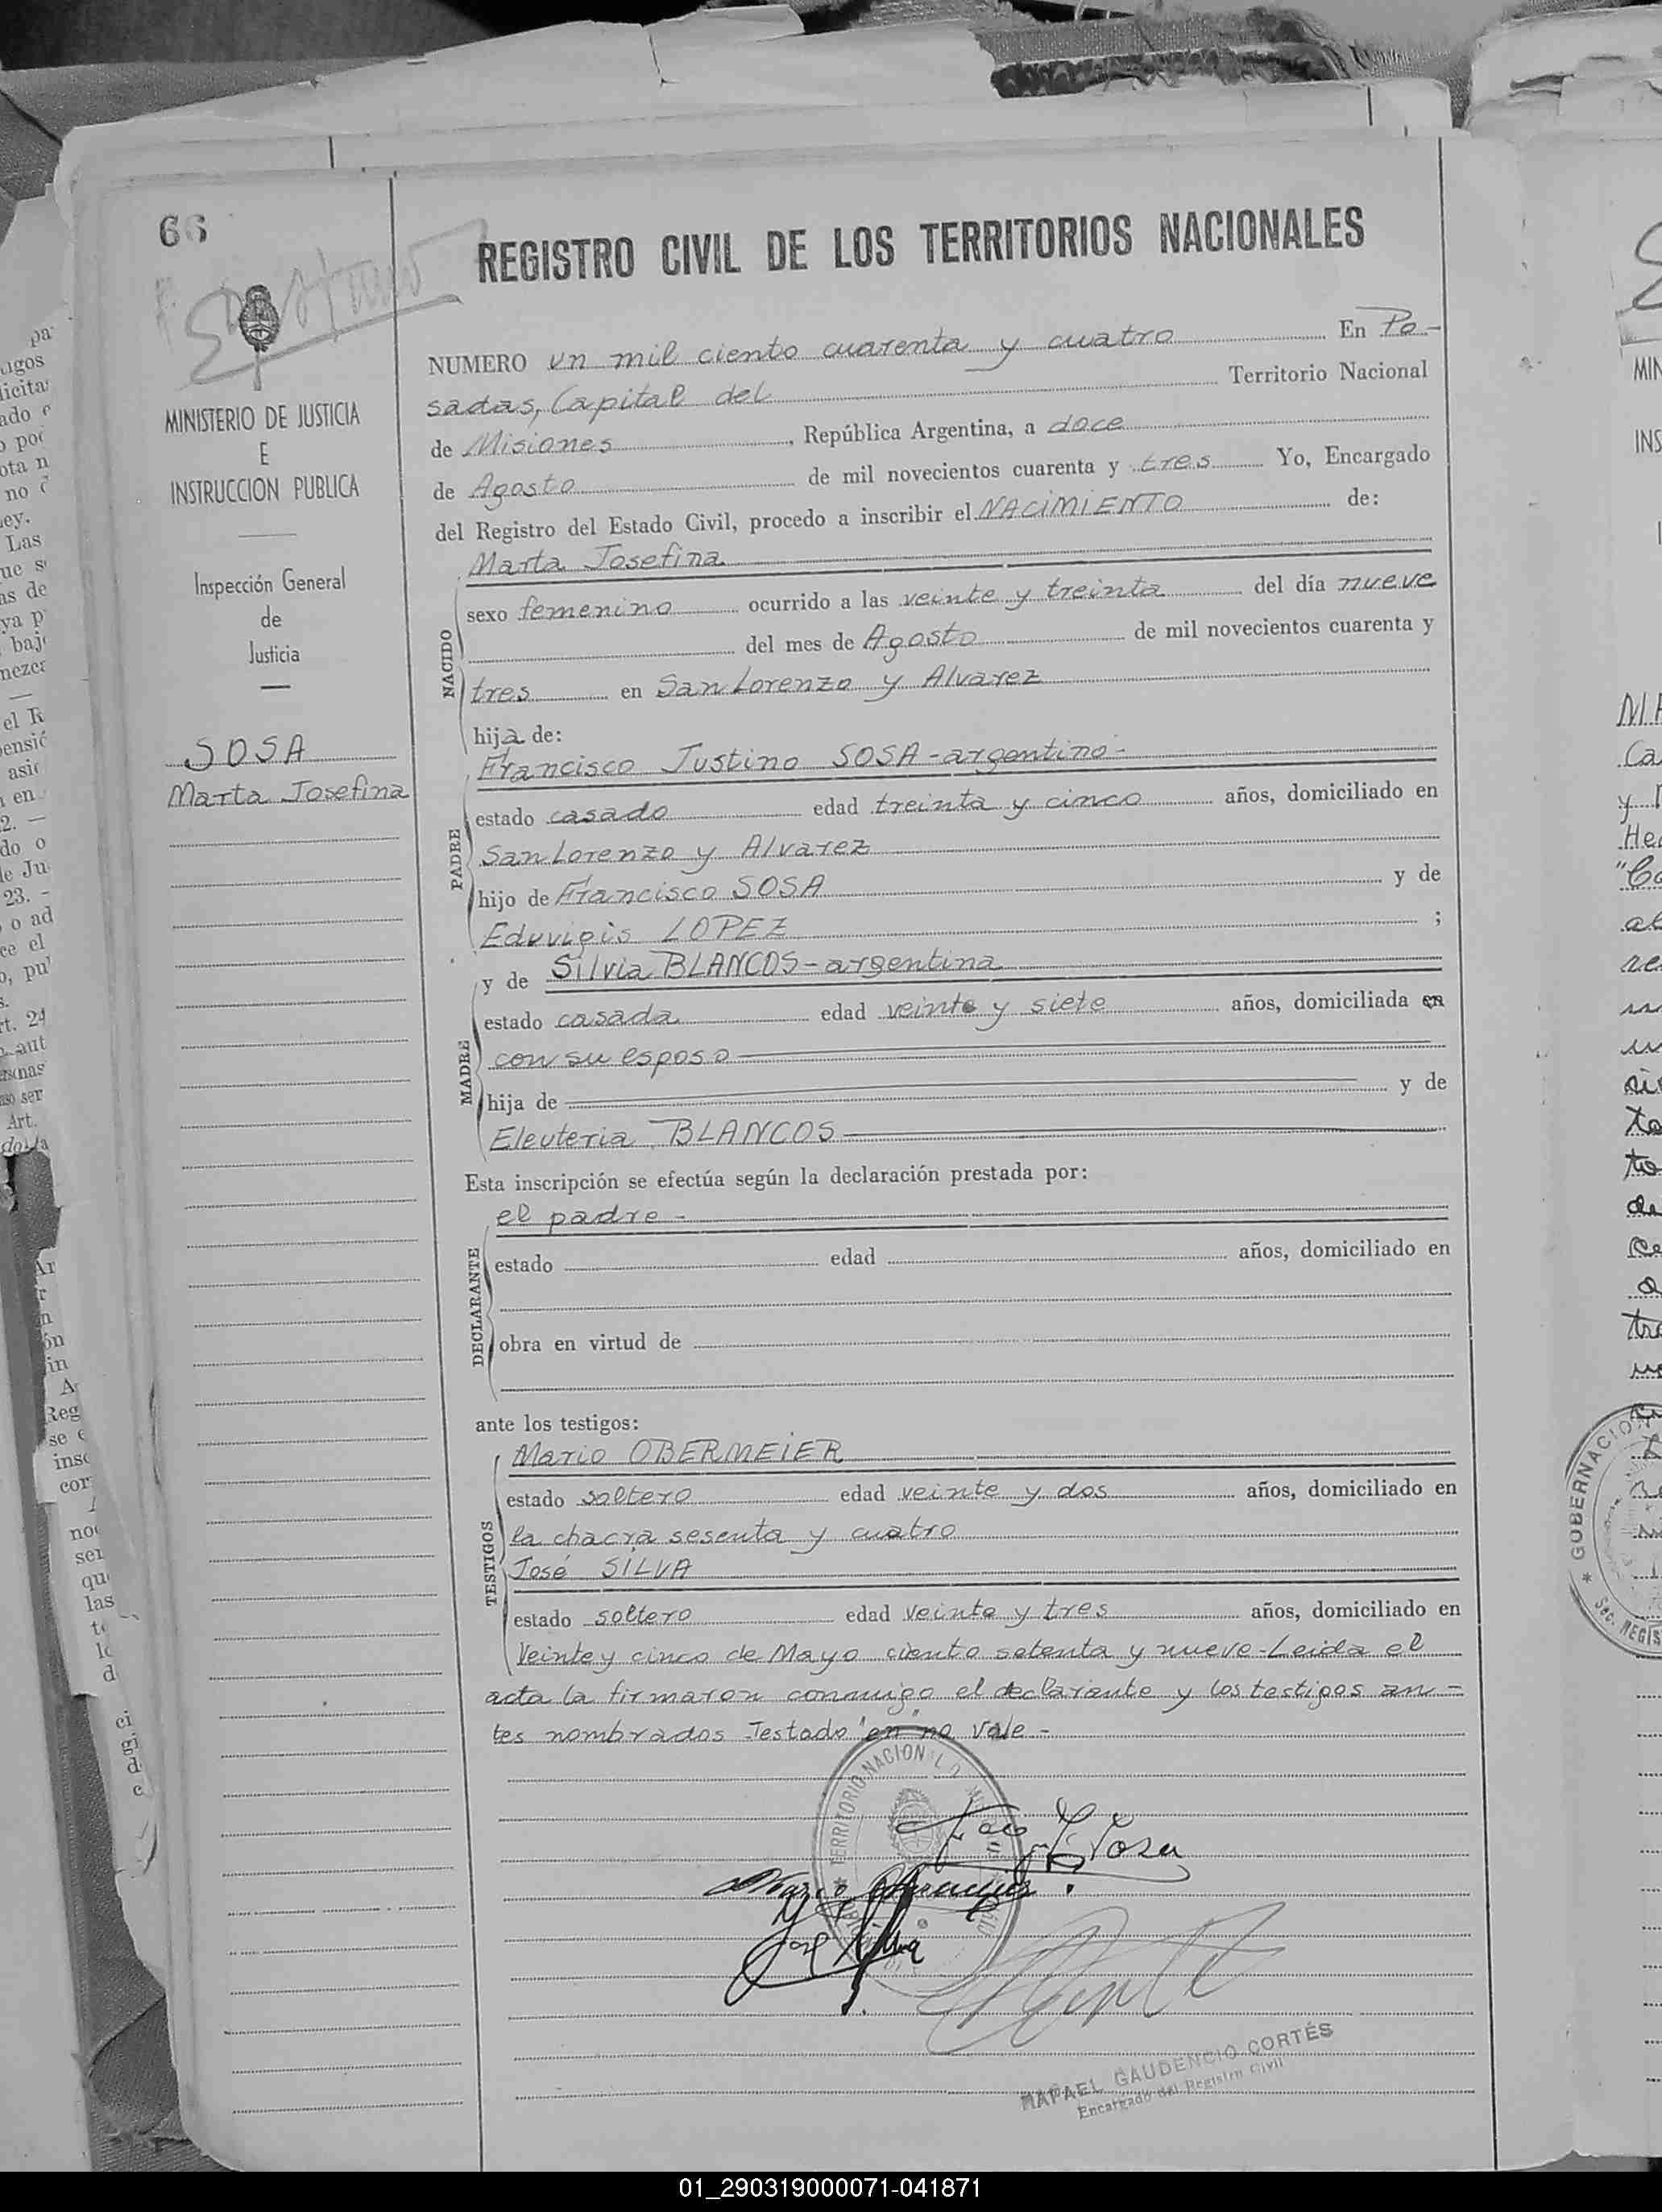 66
REGISTRO CIVIL DE LOS TERRITORIOS NACIONALES
MINISTERIO DE JUSTICIA
E
INSTRUCCION PUBLICA
Inspección General
de
Justicia
SOSA
Marta Josefina
NUMERO un mil ciento cuarenta y cuatro En Po-
sadas, Capital del Territorio Nacional
de Misiones, República Argentina, a doce
de Agosto de mil novecientos cuarenta y tres Yo, Encargado
del Registro del Estado Civil, procedo a inscribir el NACIMIENTO de:
Marta Josefina
NACIDO
sexo femenino ocurrido a las veinte y treinta del día nueve
del mes de Agosto de mil novecientos cuarenta y
tres en San Lorenzo y Alvarez
hija de:
PADRE
Francisco Justino SOSA - argentino -
estado casado edad treinta y cinco años, domiciliado en
San Lorenzo y Alvarez
hijo de Francisco SOSA y de
Eduvigis LOPEZ ;
MADRE
y de Silvia BLANCOS - argentina
estado casada edad veinte y siete años, domiciliada en
con su esposo
hija de y de
Eleuteria BLANCOS
Esta inscripción se efectúa según la declaración prestada por:
DECLARANTE
el padre -
estado edad años, domiciliado en
obra en virtud de
ante los testigos:
TESTIGOS
Mario OBERMEIER
estado soltero edad veinte y dos años, domiciliado en
la chacra sesenta y cuatro
José SILVA
estado soltero edad veinte y tres años, domiciliado en
Veinte y cinco de Mayo ciento setenta y nueve - Leida el
acta la firmaron conmigo el declarante y los testigos an-
tes nombrados - Testado "en" no vale -
TERRITORIO NACION
Sosa
José Silva
RAFAEL GAUDENCIO CORTÉS
Encargado del Registro Civil
GOBERNACION
Sec. REGIS
01_290319000071-041871